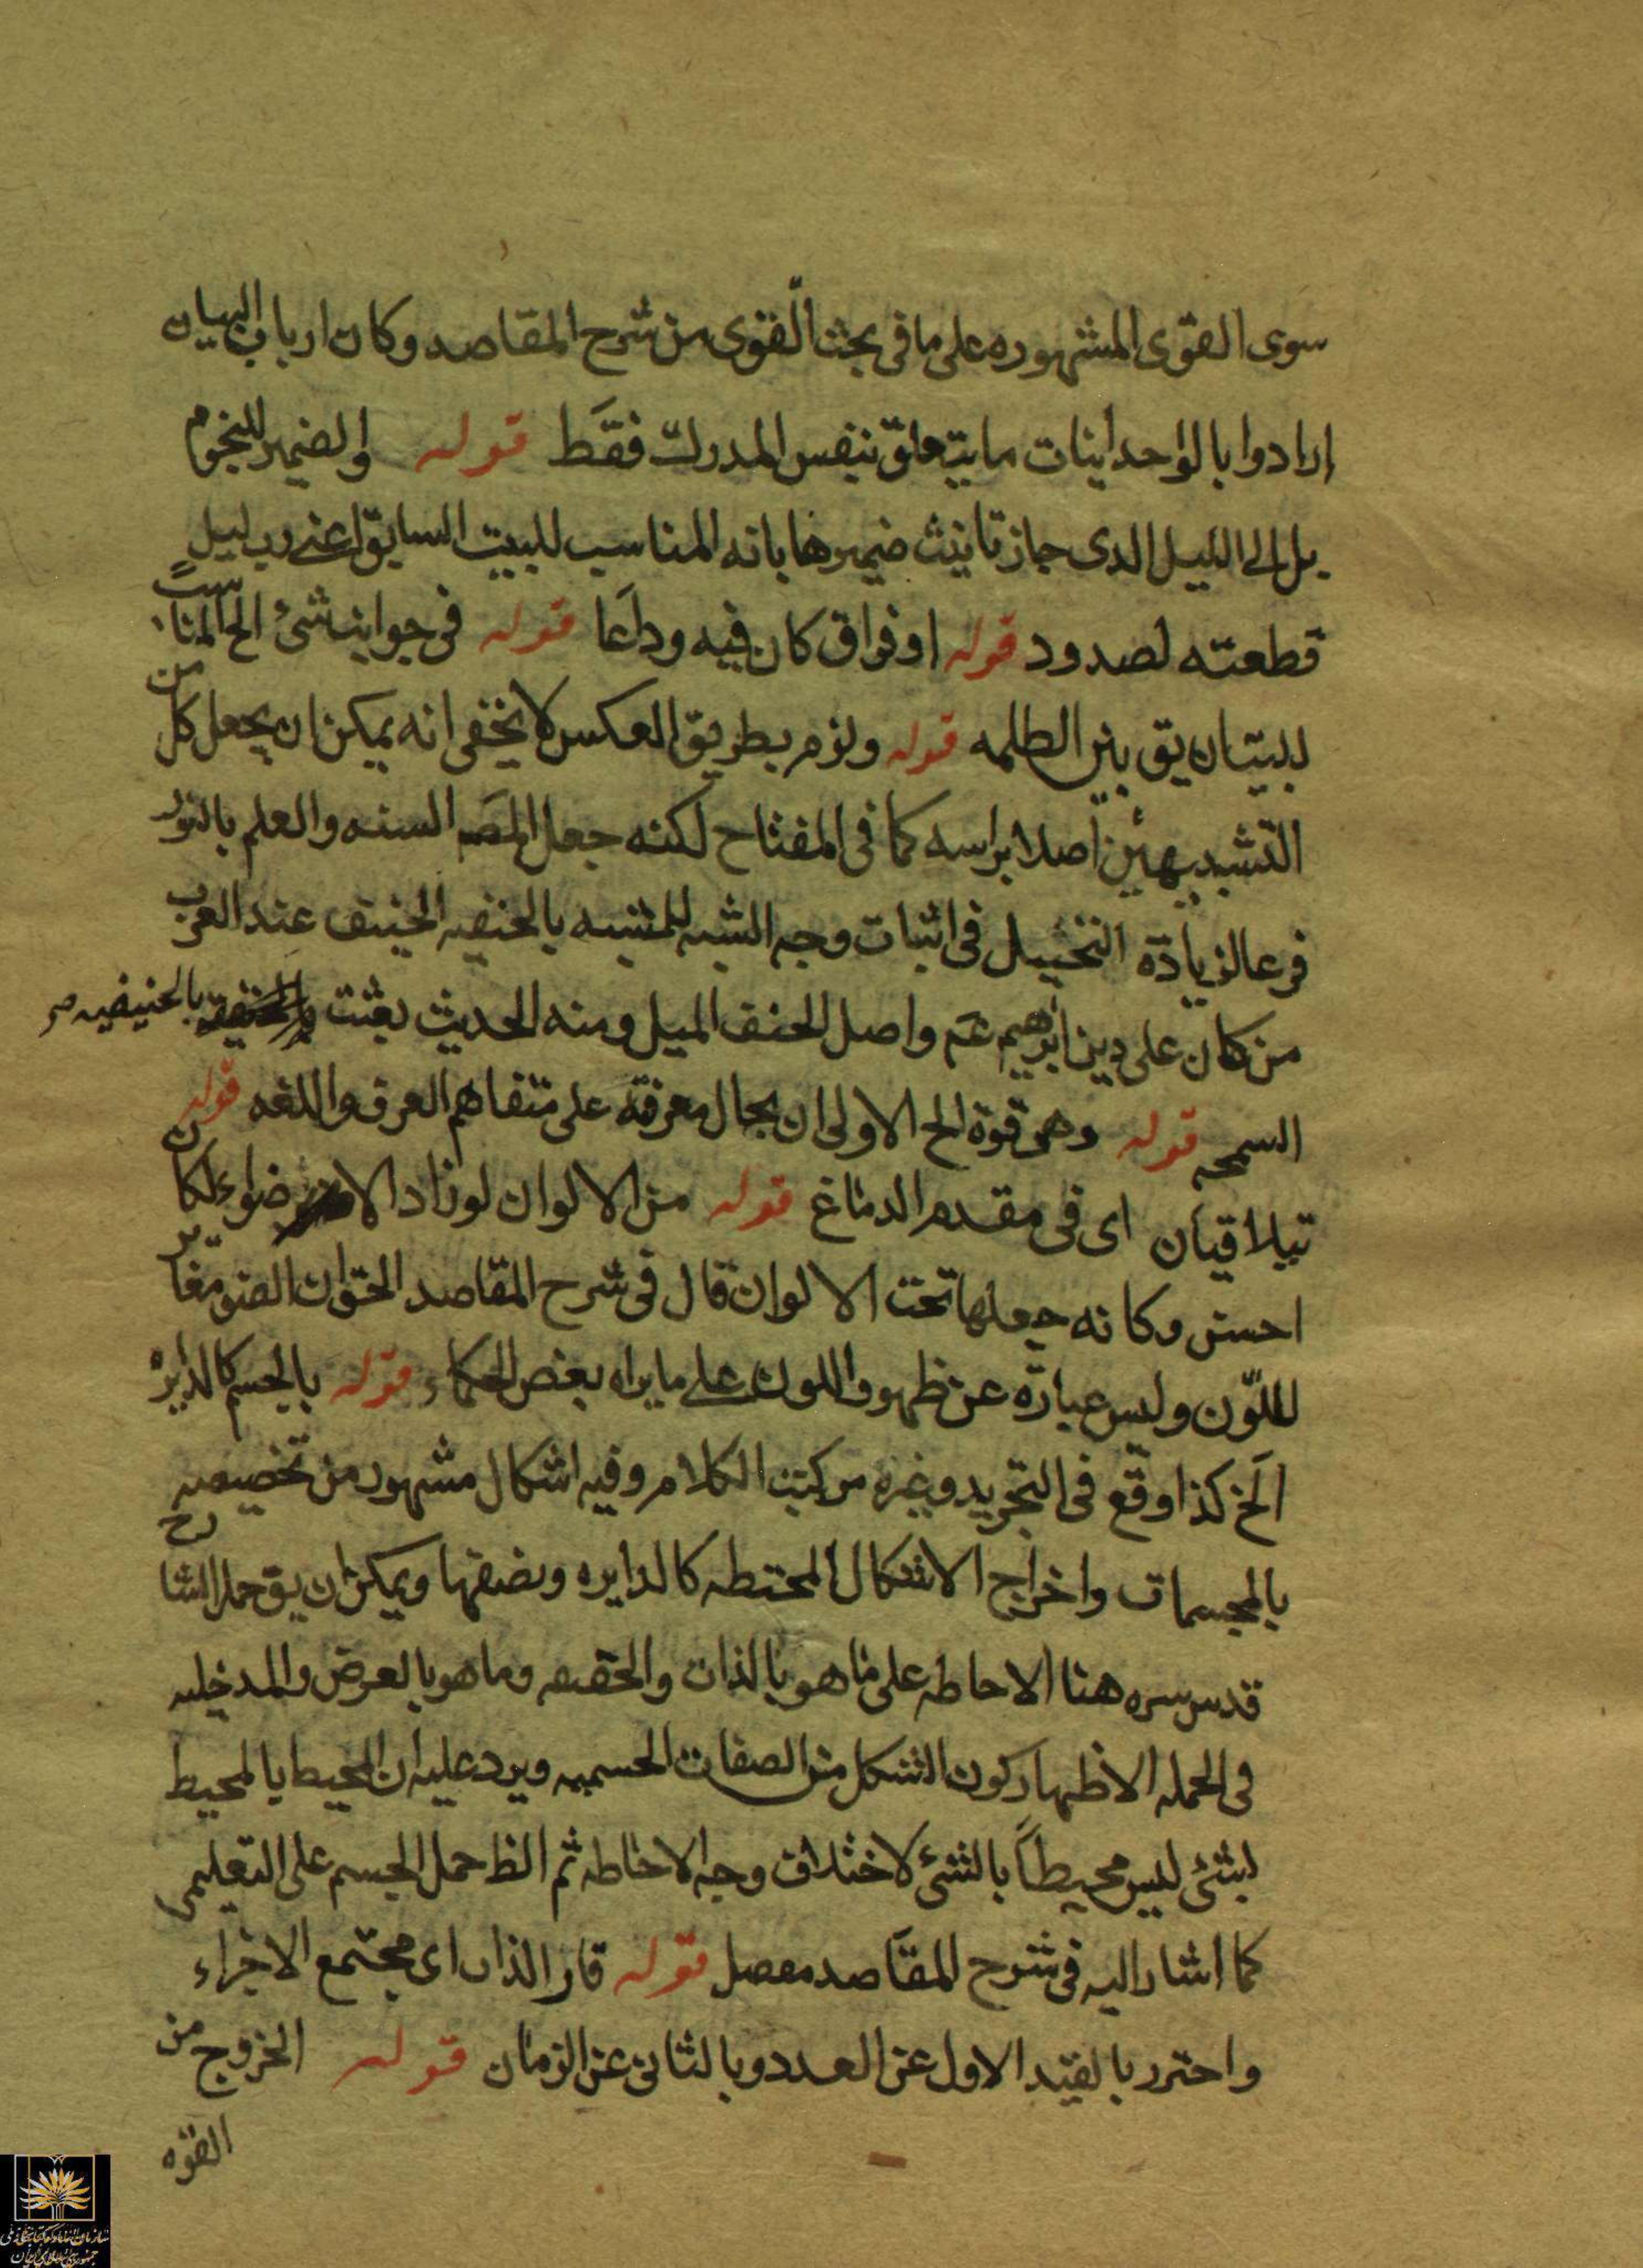 سوى القوى المشهوره على ما فى بحث القوى من شرح المقاصد وكان ارباب البيان
ارادوا بالواحدانيات ما يتعلق بنفس المدرك فقط قوله والضمير للنجوم
بل الى الليل الذى جاز تانيث ضميرها بانه المناسب للبيت السابق اعنى رب ليل
قطعته لصدود قوله او فراق كان فيه وداعا قوله فى جوانب شئ الخ المناسب
للبيت ان يق بين الظلمه قوله ولزم بطريق العكس لا يخفى انه يمكن ان يجعل كل من
التشبيهين اصلا براسه كما فى المفتاح لكنه جعل المصَ السنه والعلم بالنور
فرعا لزيادة التخييل فى اثبات وجه الشبه للمشبه بالحنفيه الحنيف عند العرب
من كان على دين ابرهيم عَم واصل الحنف الميل ومنه الحديث بعثت بالحنيفيه صح
السمحه قوله وهى قوة الخ الاولى ان يحال معرفته على متفاهم العرف واللغه قوله
تيلاقيان اى فى مقدم الدماغ قوله من الالوان لو زاد الاضواء لكان
احسن وكانه جعلها تحت الالوان قال فى شرح المقاصد الحق ان الضوء مغاير
للّون وليس عبارة عن ظهور اللون على ما يراه بعض الحكماء قوله بالجسم كالدايره
الَخ كذا وقع فى التجريد وغيره من كتب الكلام وفيه اشكال مشهور من تخصيصه
بالمجسمات واخراج الاشكال المحتطه كالدايره ونصفها ويمكن ان يق حمل الشارح
قدس سره هنا الاحاطه على ما هو بالذات والحقيقه وما هو بالعرض والمدخليه
فى الجمله الاظهار كون الشكل من الصفات الجسميه ويرد عليه ان المحيط بالمحيط
لبشئ ليس محيطاً بالشئ لاختلاف وجه الاحاطه ثم الظ حمل الجسم على التعليمى
كما اشار اليه فى شرح المقاصد مفصل قوله قار الذات اى مجتمع الاجزاء
واحترز بالقيد الاول عن العدد وبالثانى عن الزمان قوله الخروج من
القوه